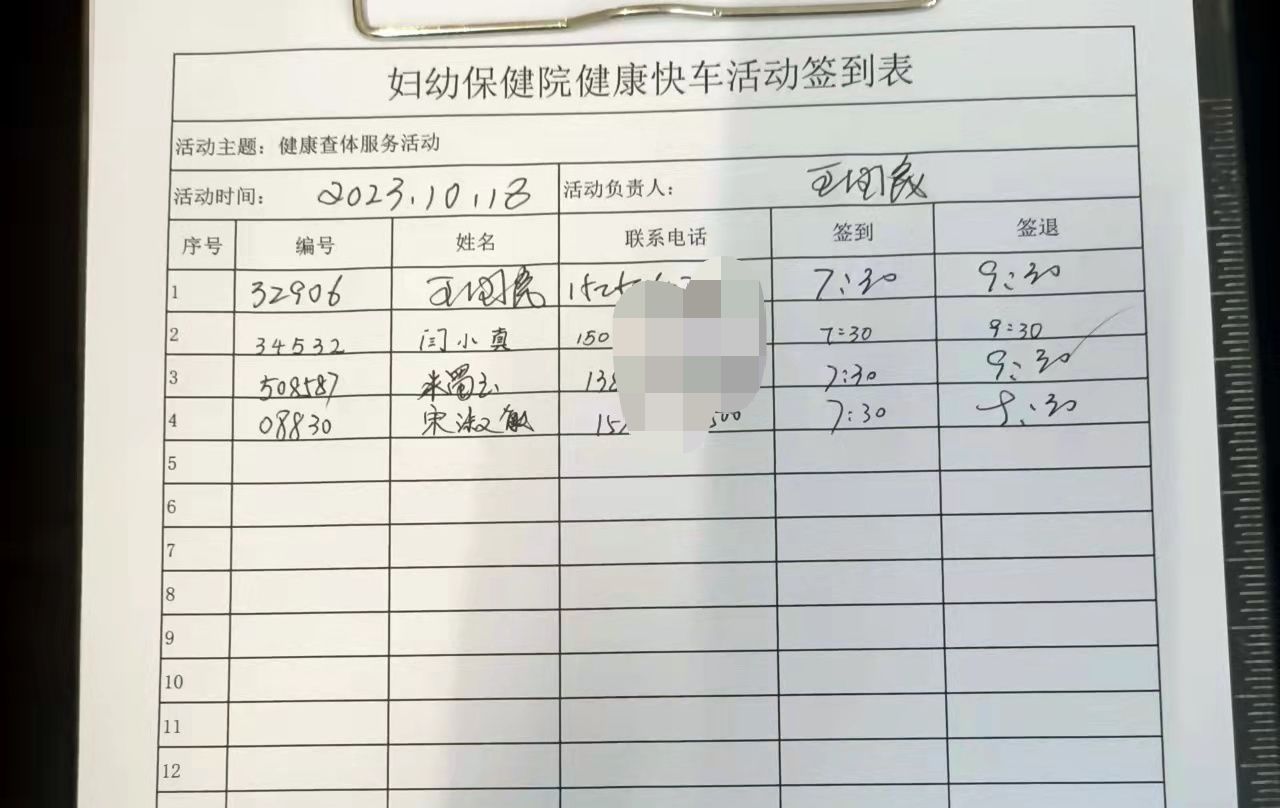 妇幼保健院健康快车活动签到表
活动主题：健康查体服务活动
活动时间： 2023.10.18 活动负责人：
序号 编号 姓名 联系电话 签到 签退
1 32906 7:30 9:30
2 34532 闫小真 150 7:30 9:30
3 508587 138 7:30 9:30
4 08830 宋淑敏 15 500 7:30 9:30
5
6
7
8
9
10
11
12